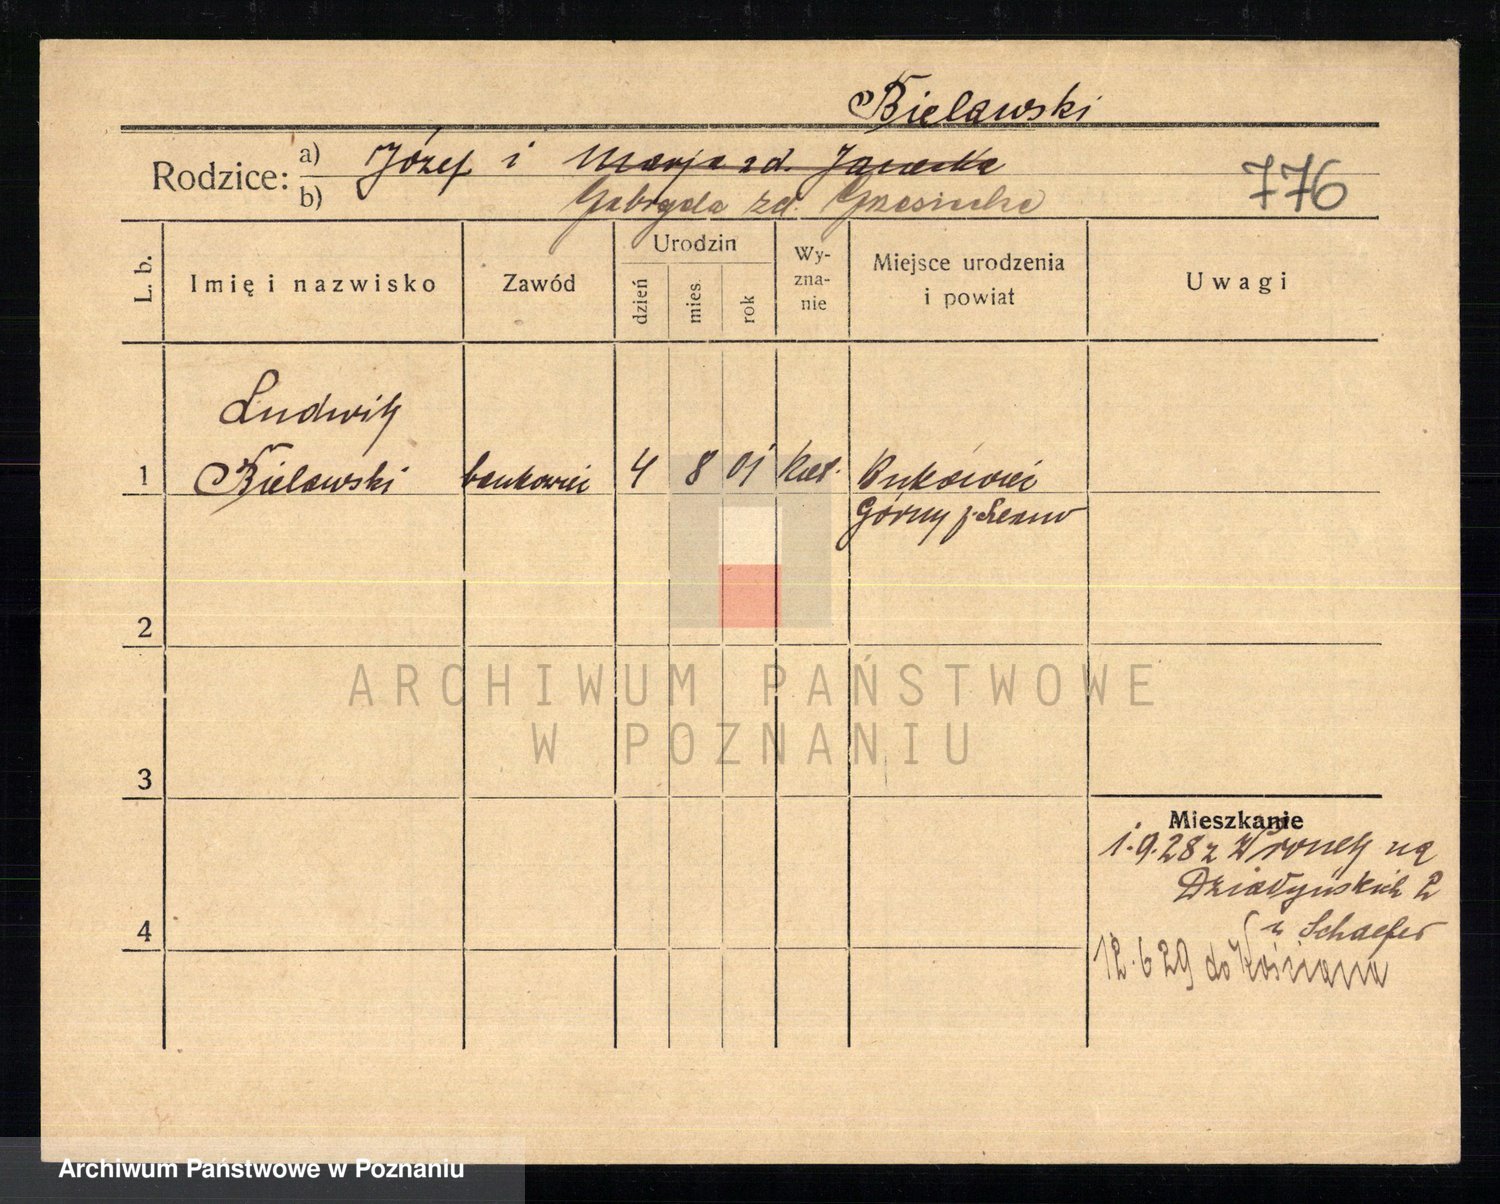 Bielawski
Rodzice: a) Józef i Marja zd. Jaracka
b) Gabryela zd.
776
L. b.
Imię i nazwisko
Zawód
Urodzin
dzień
mies.
rok
Wy-
zna-
nie
Miejsce urodzenia
i powiat
Uwagi
Ludwik
1 Bielawski bankowiec 4 8 01 kat. Bukówiec
Górny p. Leszno
2
ARCHIWUM PAŃSTWOWE
W POZNANIU
3
Mieszkanie
1.9.28 z Wronek na
Działyńskich 2
u Schaefer
4
12.6 29 do Kościana
Archiwum Państwowe w Poznaniu